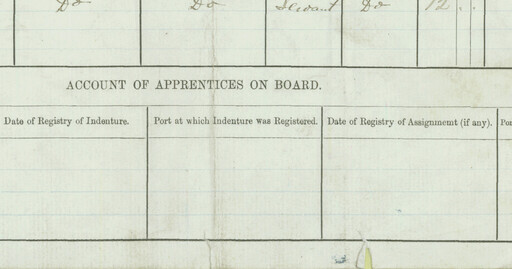 Do Do Servant Do 12 . .
ACCOUNT OF APPRENTICES ON BOARD.
Date of Registry of Indenture. Port at which Indenture was Registered. Date of Registry of Assignmemt (if any). Por